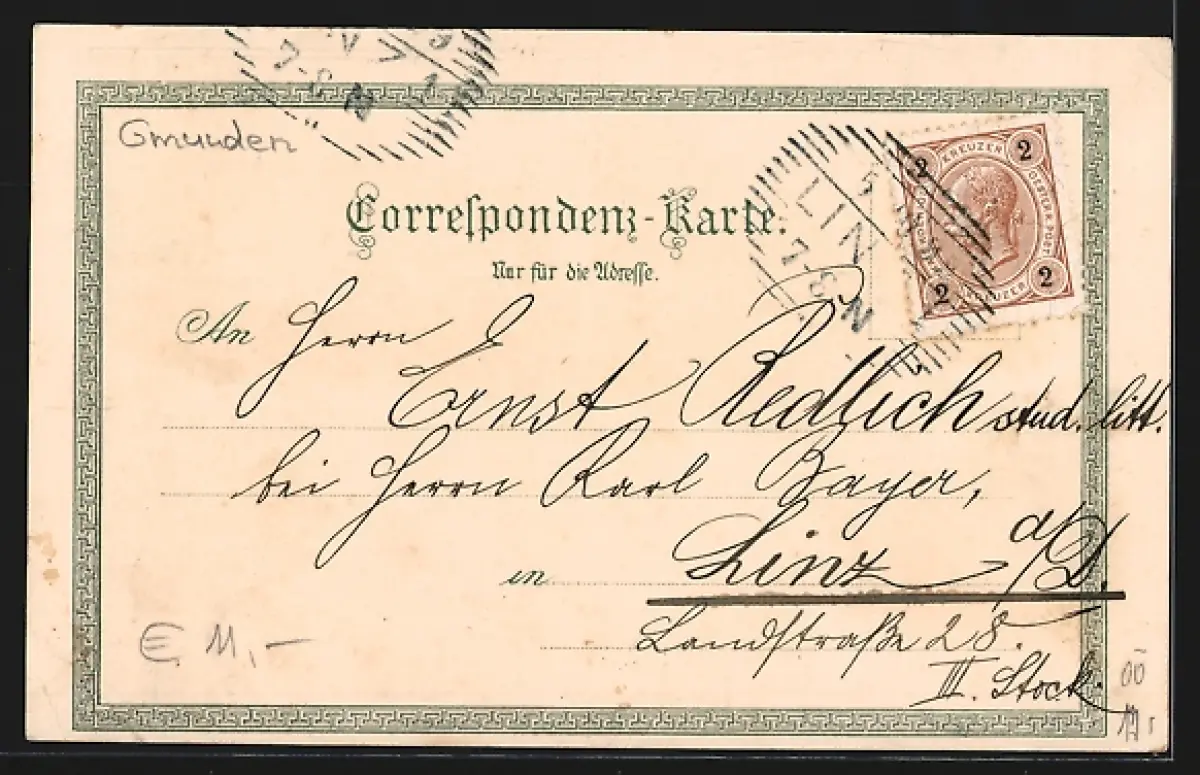 Gmunden
7-8 N
Correspondenz-Karte.
Nur für die Adresse.
LINZ
5
7-8 N
2 KREUZER 2
2 KREUZER 2
An Herrn
Ernst Redlich stud. litt.
bei Herrn Karl Bayer,
in Linz a/D.
Landstraße 28.
III. Stock.
€ 11,-